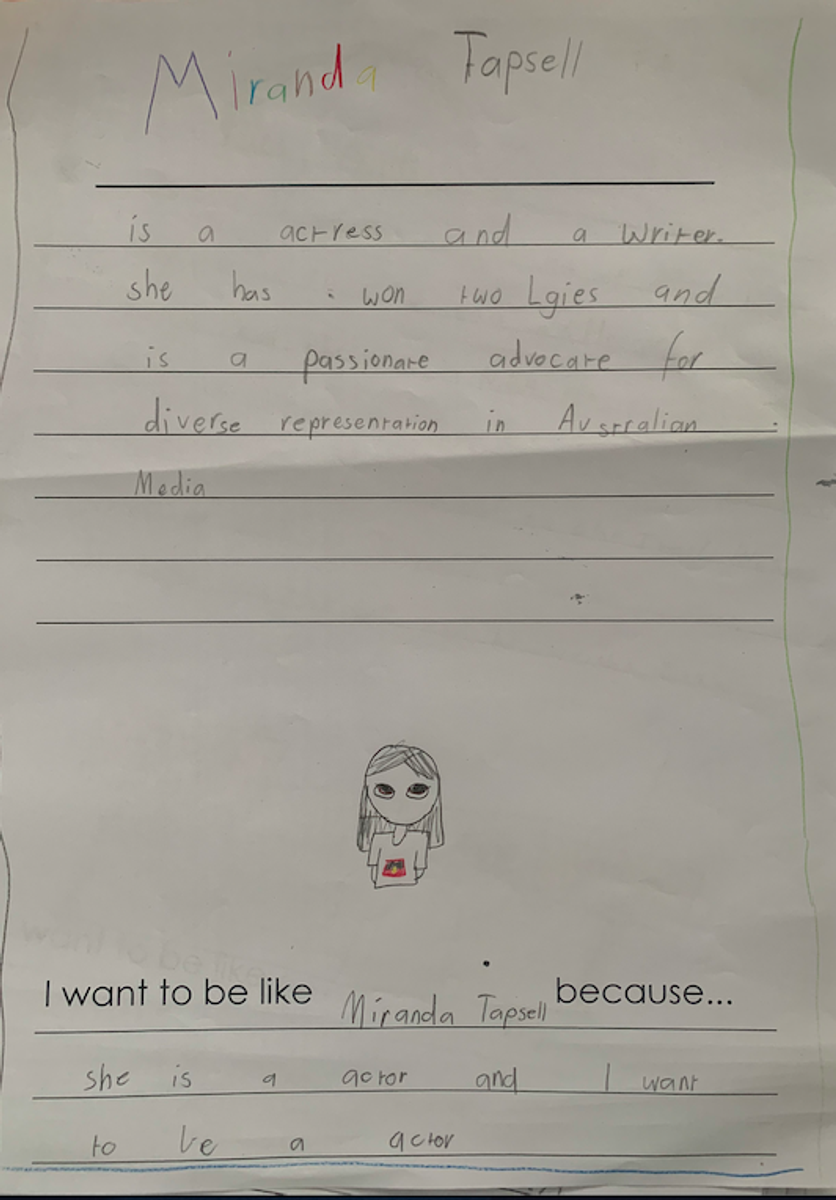 Miranda Tapsell
is a actress and a writer.
she has won two Lgies and
is a passionate advocate for
diverse representation in Australian
Media
I want to be like Miranda Tapsell because...
she is a actor and I want
to be a actor